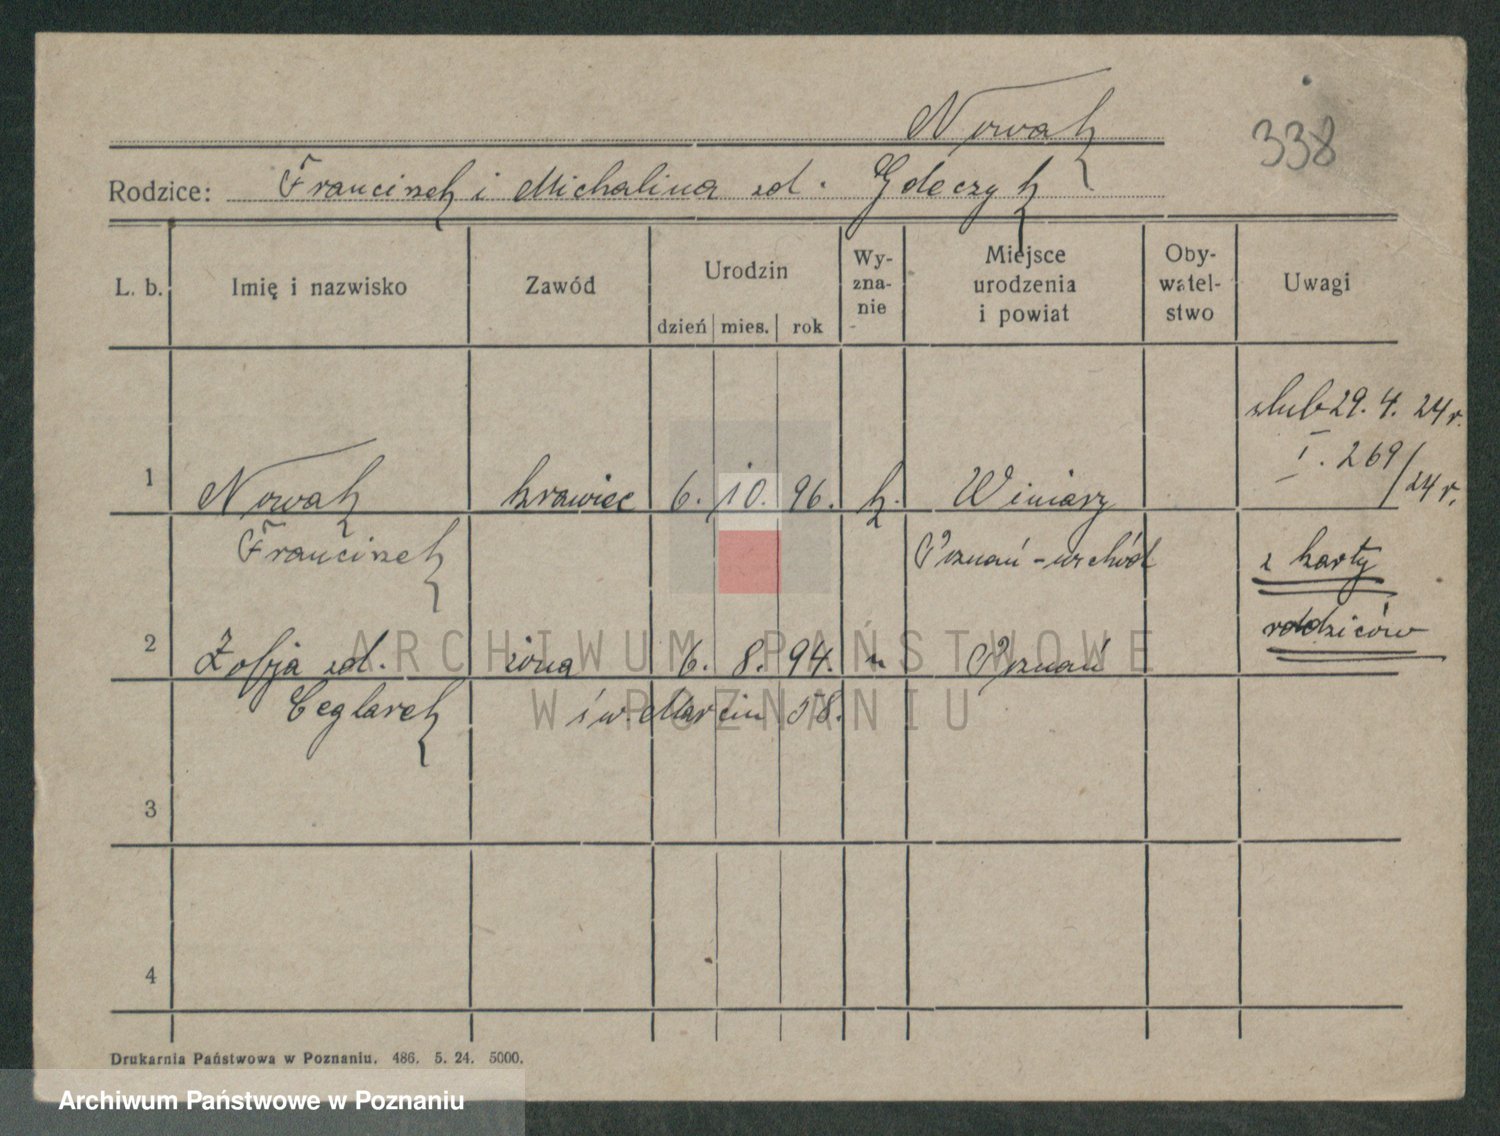 Nowak
338
Rodzice: Franciszek i Michalina zd. Gdeczyk
L. b. Imię i nazwisko Zawód Urodzin dzień mies. rok Wy-zna-nie Miejsce urodzenia i powiat Oby-watel-stwo Uwagi
ślub 29. 4. 24 r.
I. 269/24 r.
1 Nowak krawiec 6. 10. 96. k. Winiary
Franciszek Poznań-wschód z karty
rodziców
2 Zofja zd. żona 6. 8. 94. " Poznań
Ceglarek św. Marcin 58.
3
4
ARCHIWUM PAŃSTWOWE
W POZNANIU
Drukarnia Państwowa w Poznaniu. 486. 5. 24. 5000.
Archiwum Państwowe w Poznaniu